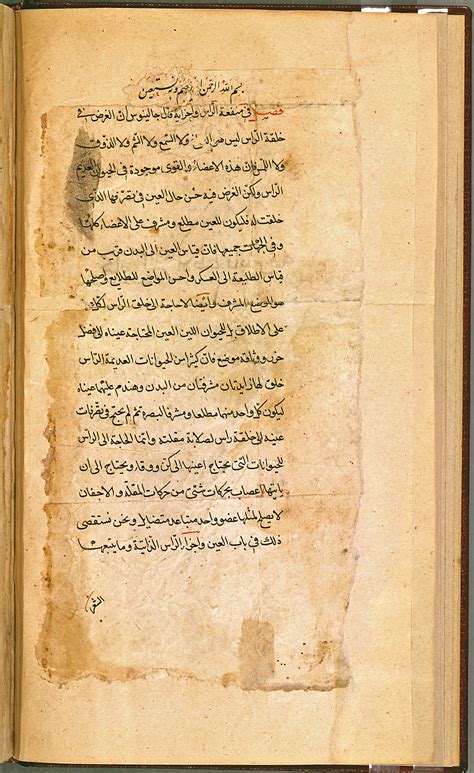 بسم الله الرحمن الرحيم وبه نستعين
فصل في منفعة الرأس وأجزائه قال جالينوس ان الغرض في
خلقة الرأس ليس هو الدماغ ولا السمع ولا الشم ولا الذوق
ولا اللمس فان هذه الاعضاء والقوى موجودة في الحيوان العديم
الرأس ولكن الغرض فيه حسن حال العين في تصرفها الذي
خلقت له فليكون للعين مطلع ومشرف على الاعضاء كلها
وفي الجهات جميعها فان قياس العين الى البدن قريب من
قياس الطليعة الى العسكر واحسن المواضع للطلايع واصلحها
هو الموضع المشرف وايضا لا حاجة الى خلق الرأس لكل
على الاطلاق بل للحيوان اللين العين المحتاجة عيناه الى فضل
حرز ووثاقة موضع فان كثيرا من الحيوانات العديمة الرأس
خلق لها زايدتان مشرفتان من البدن وهندم عليهما عيناه
ليكون كل واحد منهما مطلعا ومشرفا للبصر ثم لم يحتج في تصرفات
عينه الى خلقة رأس لصلابة مقلته وانما الحاجة الى الرأس
للحيوانات التي يحتاج اعينها الى كن ووقاء ويحتاج الى ان
يأتيها اعصاب بحركات شتى من حركات المقلة والاجفان
لا يصلح لمثلها عضو واحد متباعد متضايل ونحن نستقصي
ذلك في باب العين واجزاء الرأس الذاتية وما يتبعها
الشعر